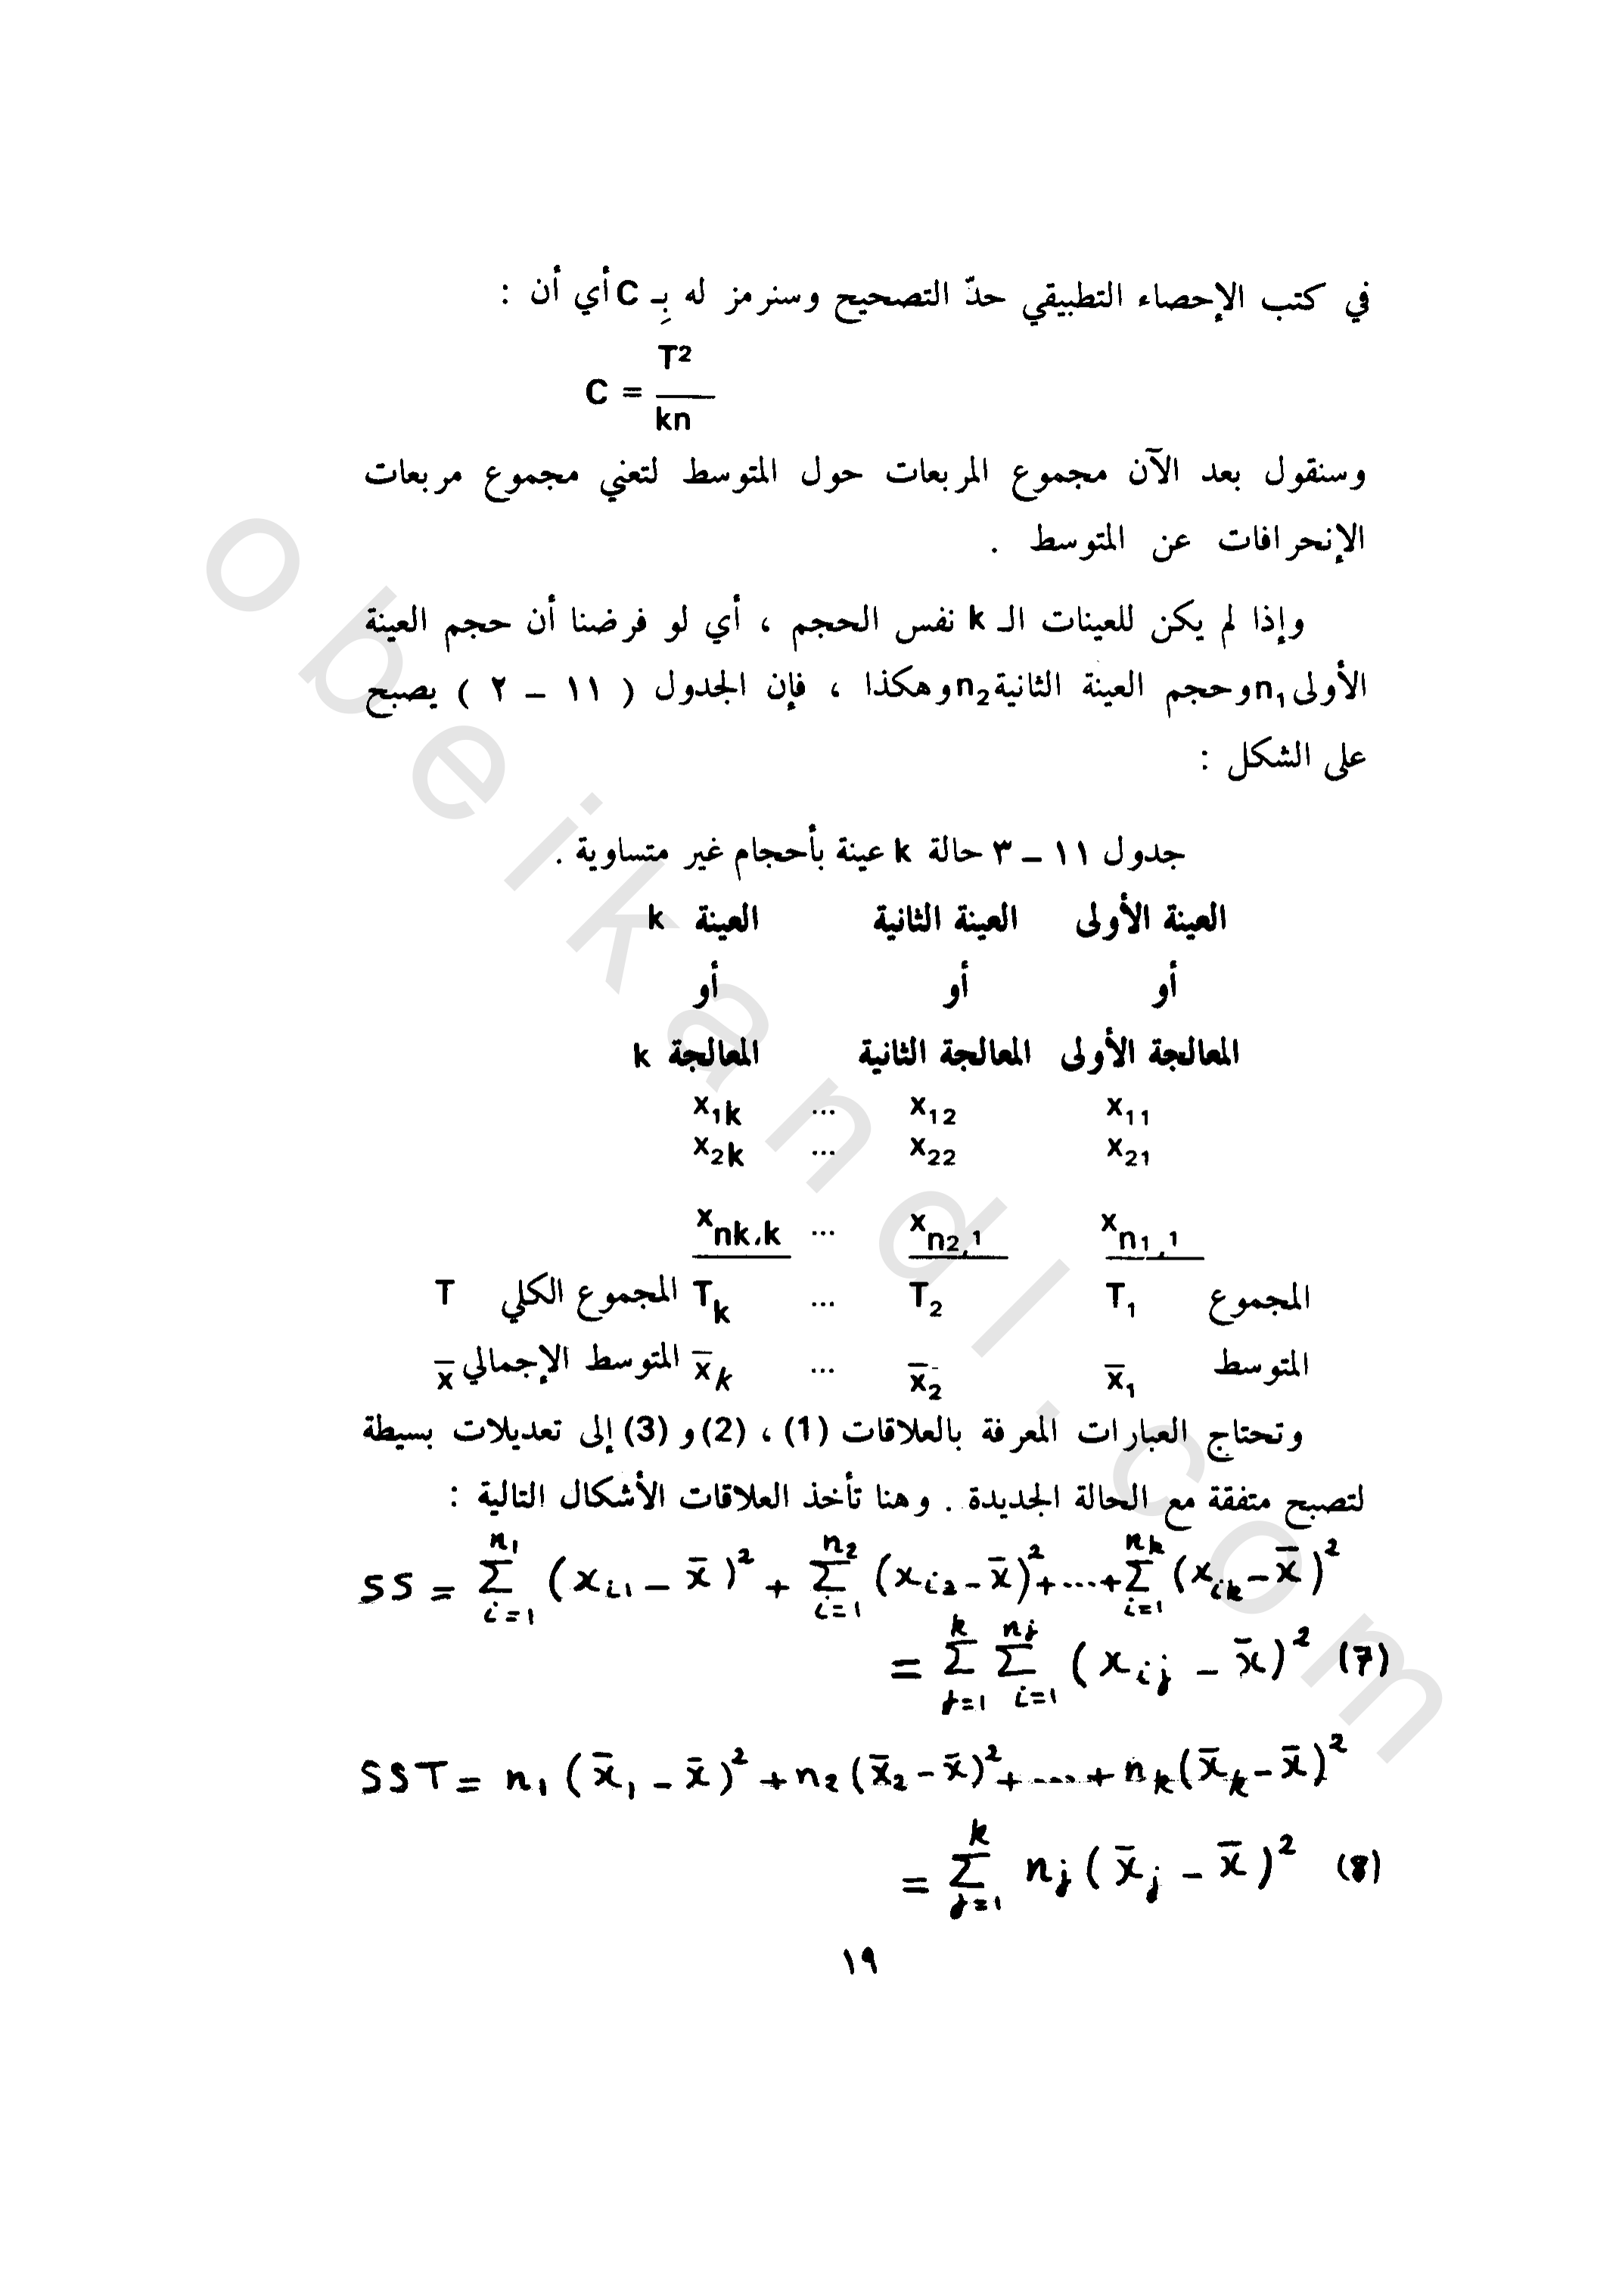 في كتب الإحصاء التطبيقي حدّ التصحيح وسنرمز له بِـ C أي أن :
C = T² / kn
وسنقول بعد الآن مجموع المربعات حول المتوسط لتعني مجموع مربعات
الإنحرافات عن المتوسط .
وإذا لم يكن للعينات الـ k نفس الحجم ، أي لو فرضنا أن حجم العينة
الأولى n₁ وحجم العينة الثانية n₂ وهكذا ، فإن الجدول ( ١١ – ٢ ) يصبح
على الشكل :
جدول ١١ – ٣ حالة k عينة بأحجام غير متساوية .
العينة الأولى العينة الثانية العينة k
أو أو أو
المعالجة الأولى المعالجة الثانية المعالجة k
x₁₁ x₁₂ ... x₁k
x₂₁ x₂₂ ... x₂k
x_n₁,₁ x_n₂,₁ ... x_nk,k
المجموع T₁ T₂ ... Tk المجموع الكلي T
المتوسط x̄₁ x̄₂ ... x̄k المتوسط الإجمالي x̄
وتحتاج العبارات المعرفة بالعلاقات (1) ، (2) و (3) إلى تعديلات بسيطة
لتصبح متفقة مع الحالة الجديدة . وهنا تأخذ العلاقات الأشكال التالية :
SS = Σ_{i=1}^{n₁} (x_{i1} – x̄)² + Σ_{i=1}^{n₂} (x_{i2} – x̄)² + .... + Σ_{i=1}^{nk} (x_{ik} – x̄)²
= Σ_{j=1}^{k} Σ_{i=1}^{nj} (x_{ij} – x̄)² (7)
SST = n₁ (x̄₁ – x̄)² + n₂ (x̄₂ – x̄)² + ..... + nk (x̄k – x̄)²
= Σ_{j=1}^{k} nj (x̄j – x̄)² (8)
١٩
obeikandl.com